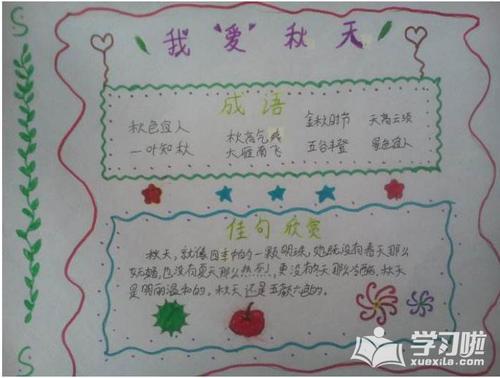 我爱秋天
成语
秋色宜人 秋高气爽 金秋时节 天高云淡
一叶知秋 大雁南飞 五谷丰登 景色宜人
佳句欣赏
秋天,就像四季中的一颗明珠,她既没有春天那么
妩媚,也没有夏天那么热烈,更没有冬天那么冷酷,秋天
是明丽温和的。秋天还是五颜六色的。
学习啦
xuexila.com